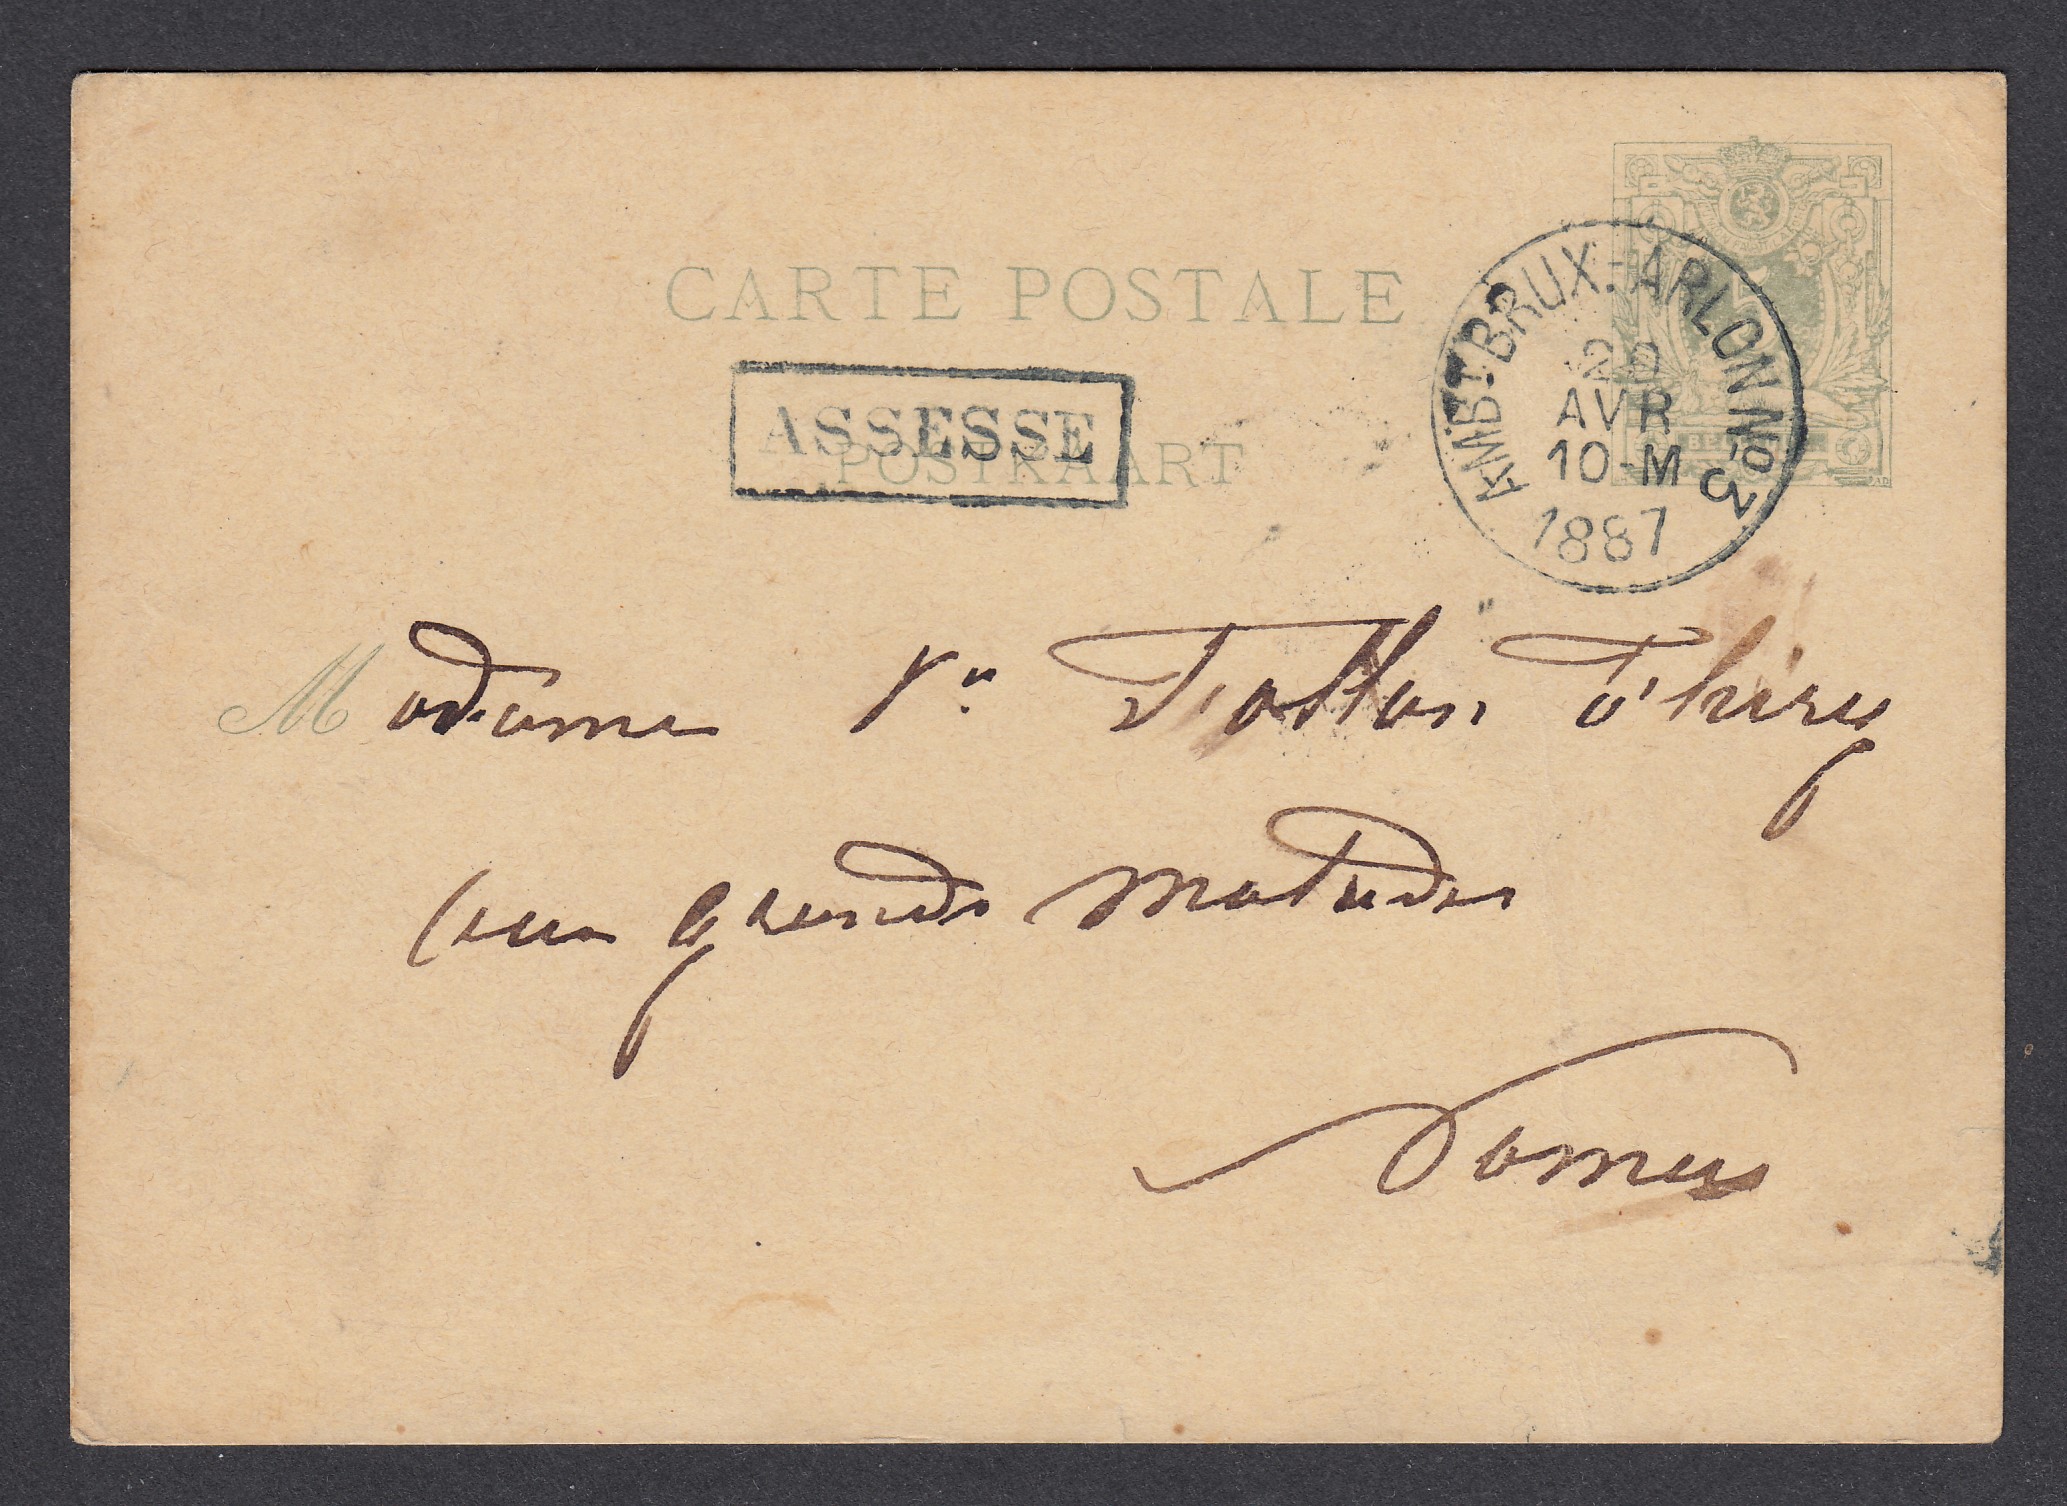 CARTE POSTALE
ASSESSE
POSTKAART
AMBT. BRUX.-ARLON No 3
20
AVR
10-M
1887
5
Madame Ve Thiry
aux grands malades
Namur